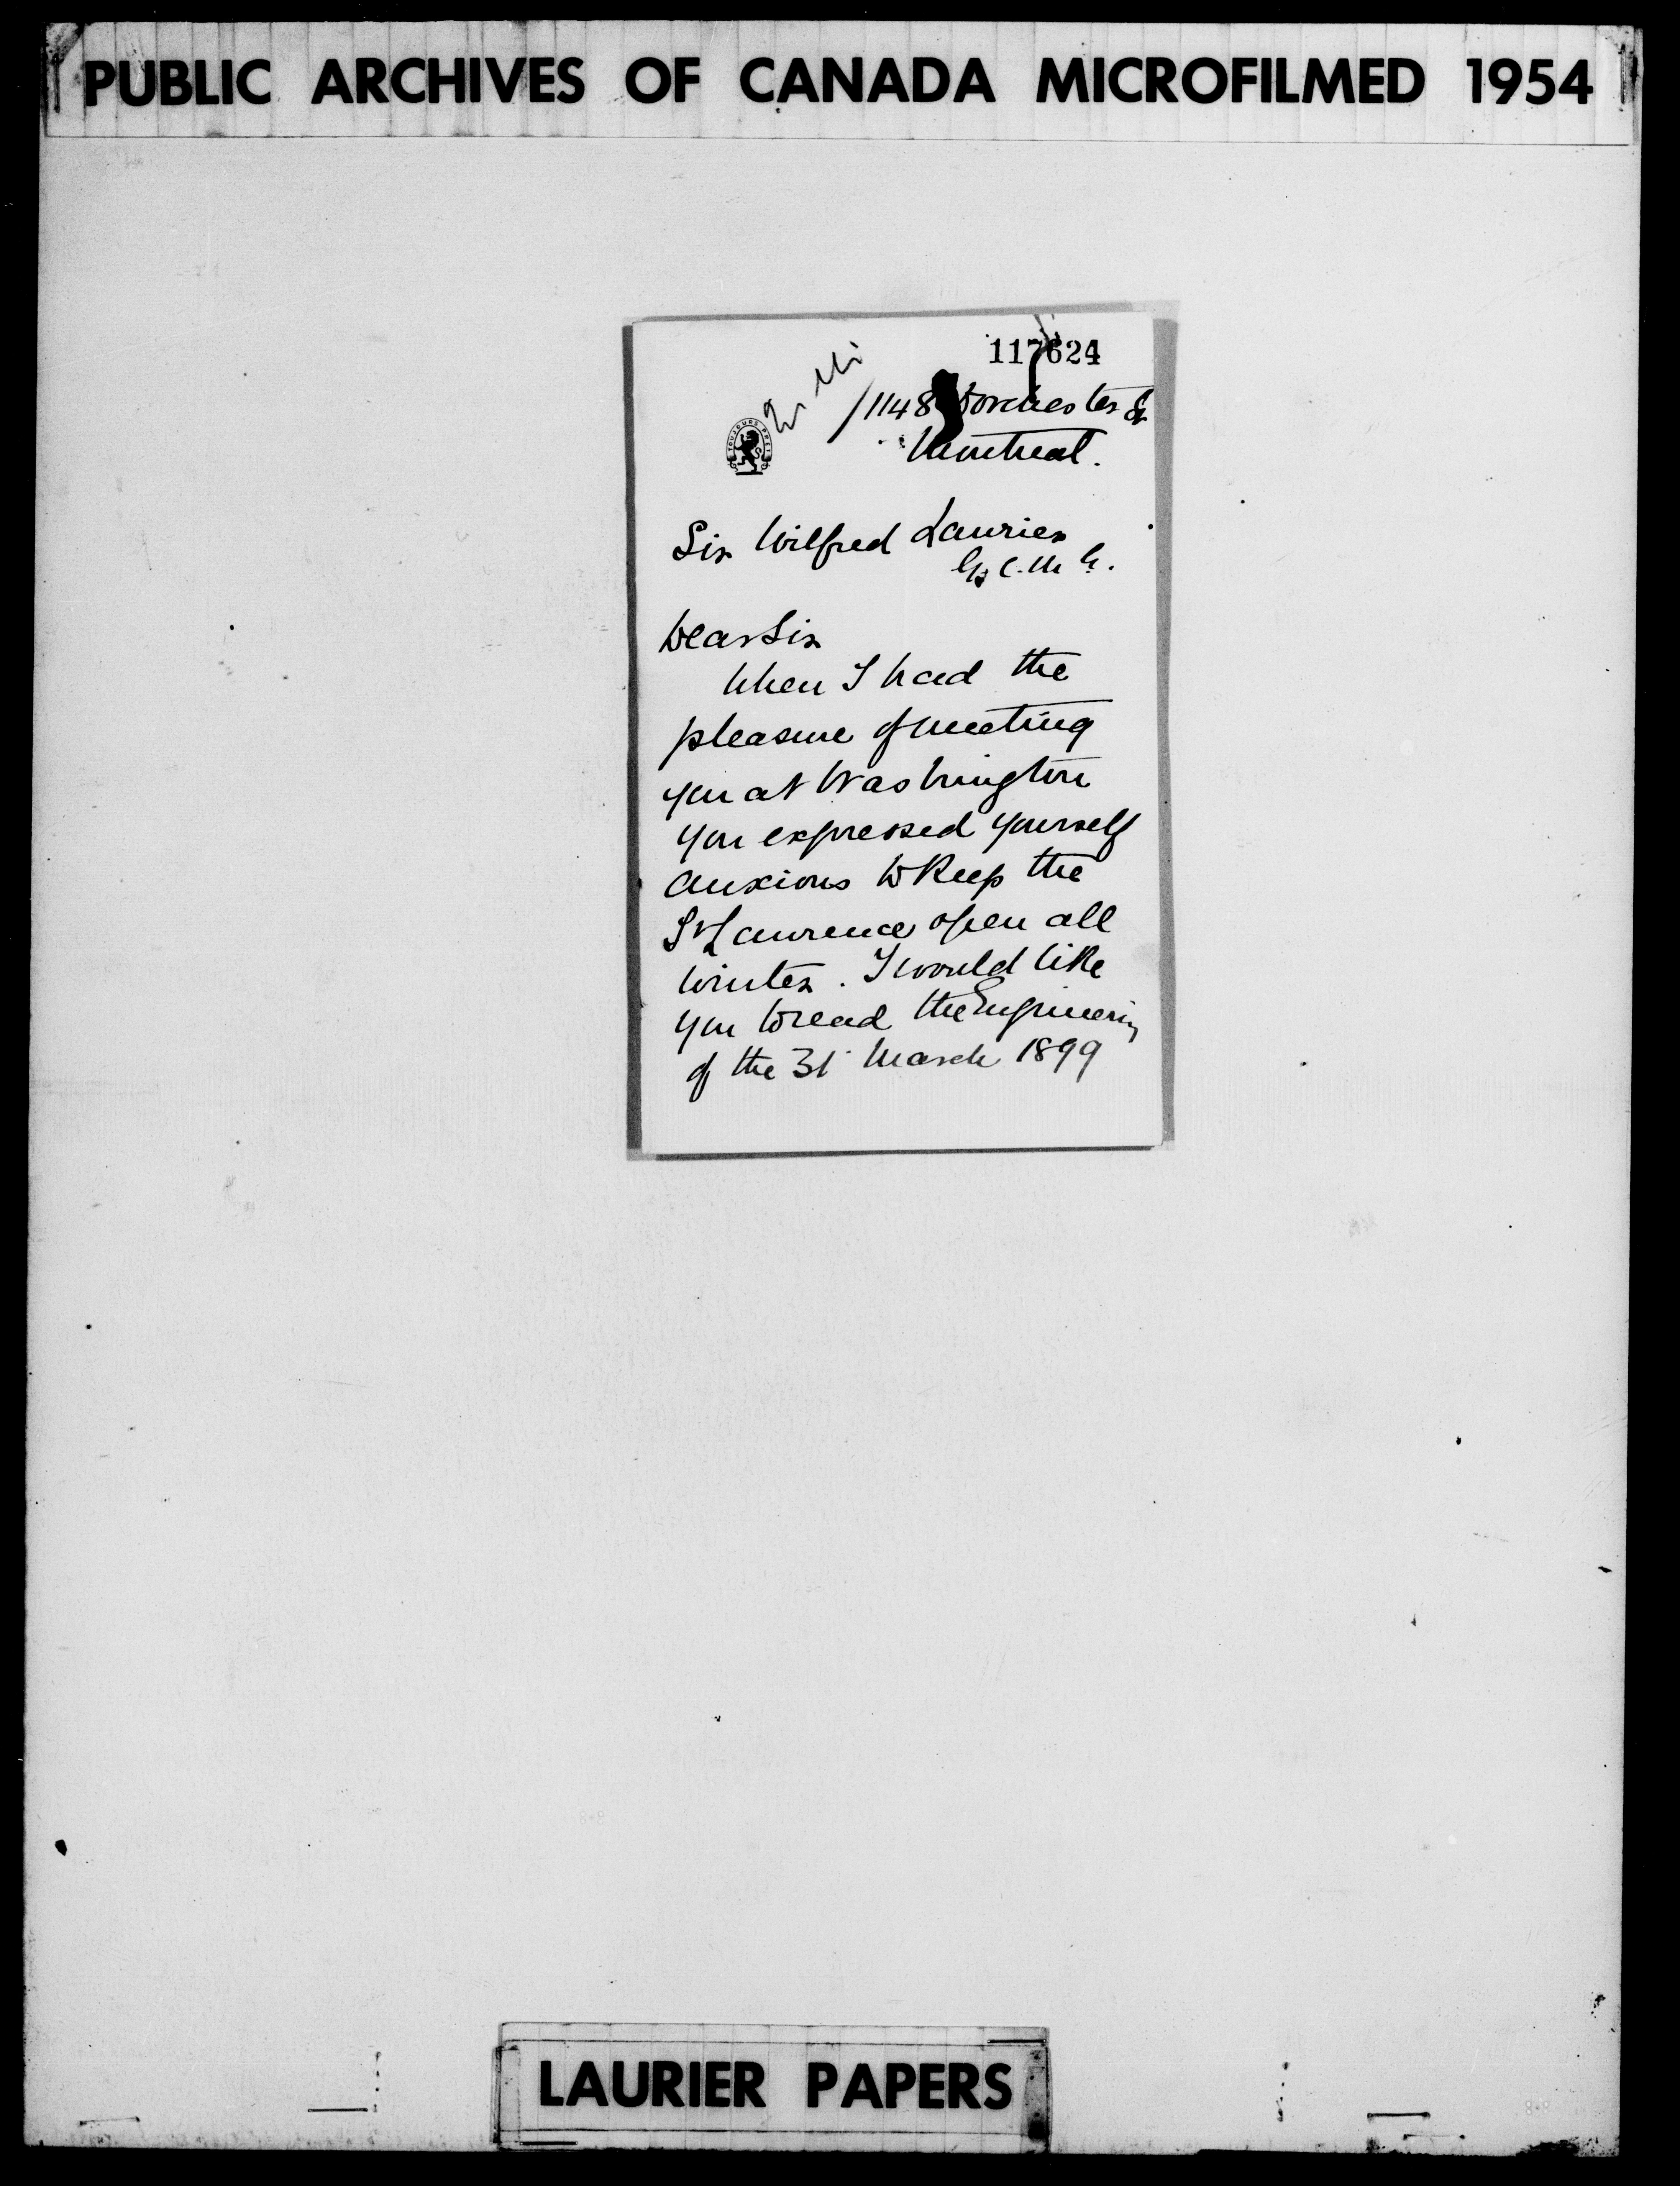 PUBLIC ARCHIVES OF CANADA MICROFILMED 1954
117624
1148 Dorchester St
Montreal.
TOUJOURS PRET
Sir Wilfred Laurier
G.C.M.G.
Dear Sir
When I had the
pleasure of meeting
you at Washington
you expressed yourself
anxious to keep the
St Lawrence open all
winter. I would like
you to read the Engineering
of the 31 March 1899
LAURIER PAPERS